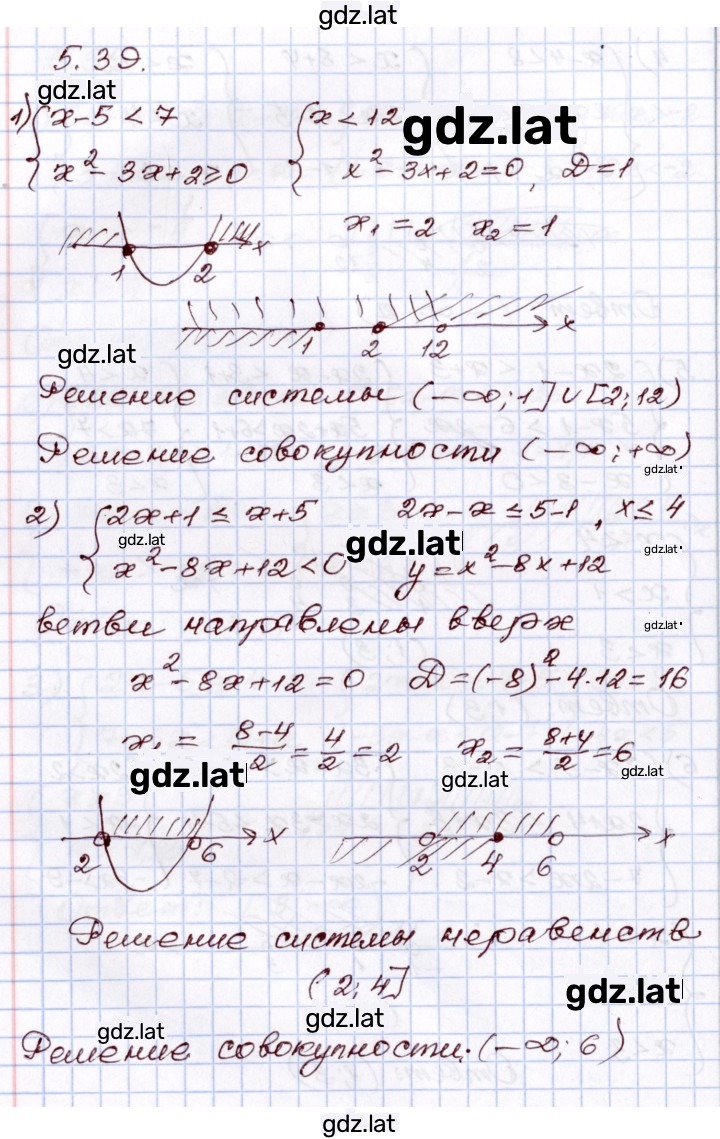 gdz.lat
5.39.
gdz.lat
1) { x-5 < 7   { x < 12
gdz.lat
x² - 3x + 2 ≥ 0   x² - 3x + 2 = 0, D = 1
x₁ = 2   x₂ = 1
1   2   x
1   2   12   x
gdz.lat
Решение системы (-∞; 1] ∪ [2; 12)
Решение совокупности (-∞; +∞)
gdz.lat
2) { 2x + 1 ≤ x + 5   2x - x ≤ 5 - 1, x ≤ 4
gdz.lat   gdz.lat   gdz.lat
x² - 8x + 12 < 0   y = x² - 8x + 12
ветви направлены вверх
gdz.lat
x² - 8x + 12 = 0   D = (-8)² - 4·12 = 16
x₁ = 8-4/2 = 4/2 = 2   x₂ = 8+4/2 = 6
gdz.lat   gdz.lat   gdz.lat
2   6   x   2   4   6   x
Решение системы неравенств
(2; 4]
gdz.lat
gdz.lat   gdz.lat
Решение совокупности. (-∞; 6)
gdz.lat